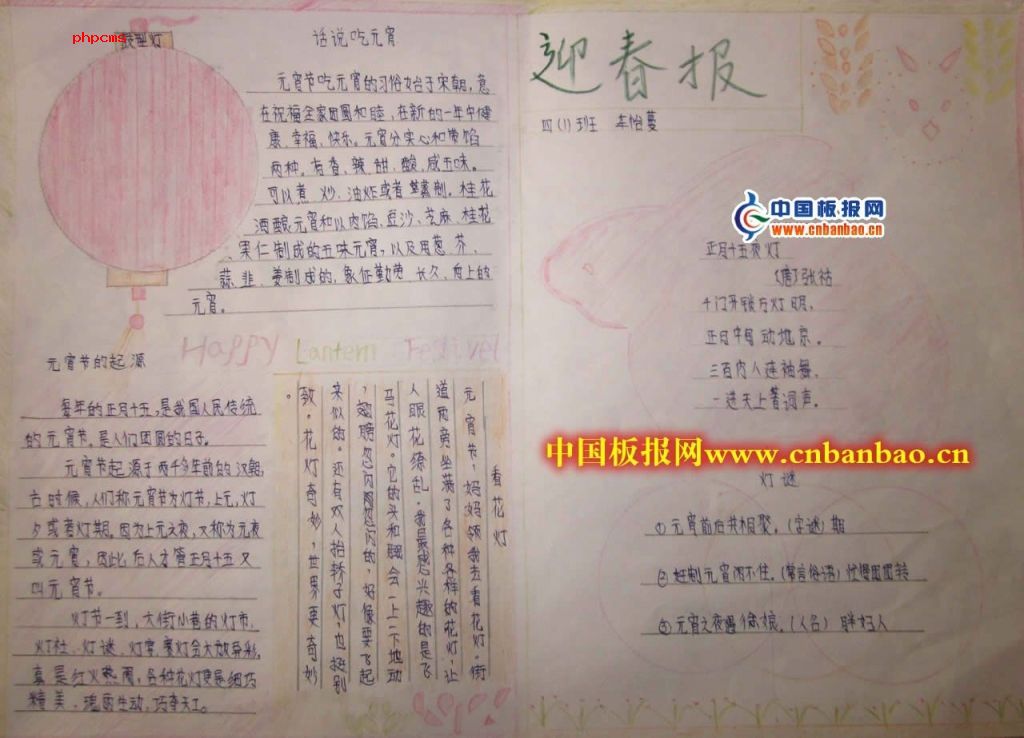 phpcms
鼓型灯
话说吃元宵
元宵节吃元宵的习俗始于宋朝，意
在祝福全家团圆和睦，在新的一年中健
康、幸福、快乐。元宵分实心和带馅
两种。有香、辣、甜、酸、咸五味。
可以煮、炒、油炸或者蒸制。桂花
酒酿元宵和以肉馅、豆沙、芝麻、桂花
、果仁制成的五味元宵，以及用葱、芥、
蒜、韭、姜制成的，象征勤劳、长久、向上的
元宵。
Happy Lantern Festivel
元宵节的起源
每年的正月十五，是我国人民传统
的元宵节。是人们团圆的日子。
元宵节起源于两千多年前的汉朝，
古时候，人们称元宵节为灯节，上元，灯
夕或者灯期。因为上元之夜，又称为元夜
或元宵，因此，后人才管正月十五又
叫元宵节。
灯节一到，大街小巷的灯市，
灯社、灯谜、灯宴、赛灯会大放异彩，
真是红火热闹，各种花灯更是细巧
精美、瑰丽生动，巧夺天工。
看花灯
元宵节，妈妈领我去看花灯，街
道两旁坐满了各种各样的花灯，让
人眼花缭乱。我最感兴趣的是飞
马花灯。它的头和腿会一上一下地动
，翅膀忽闪忽闪的，好像要飞起
来似的。还有双人抬轿子灯，也挺别
致。花灯奇妙，世界更奇妙
。
迎春报
四（1）班
中国板报网
www.cnbanbao.cn
正月十五夜灯
（唐）张祜
千门开锁万灯明，
正月中旬动地京。
三百内人连袖舞，
一进天上著词声。
中国板报网www.cnbanbao.cn
灯谜
①元宵前后共相聚。（字谜）期
②赶制元宵闲不住。（常言俗语）忙得团团转
③元宵之夜遇徐娘。（人名）